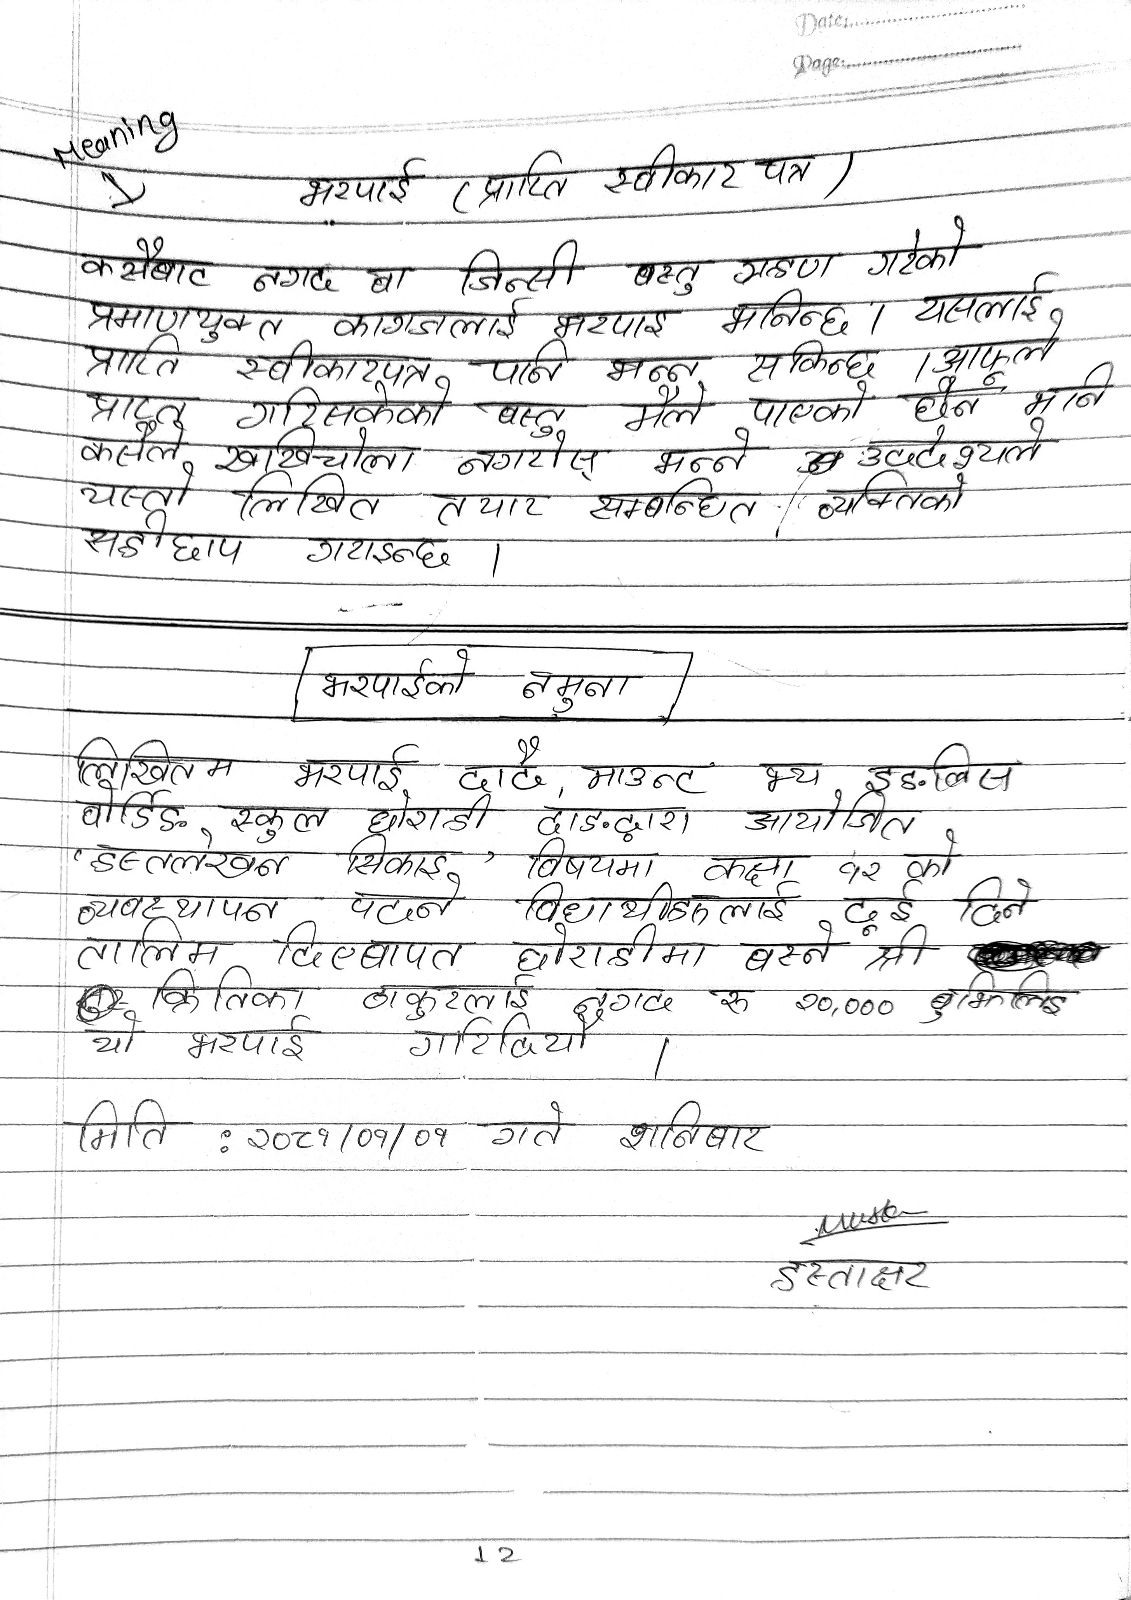 Date:
Page:
Meaning
भरपाई (प्राप्ति स्वीकार पत्र)
कसैबाट नगद बा जिन्सी बस्तु ग्रहण गरेको
प्रमाणयुक्त कागजलाई भरपाइ भनिन्छ। यसलाई
प्राप्ति स्वीकारपत्र पनि भन्न सकिन्छ ।आफूले
प्राप्त गरिसकेको बस्तु मैले पाएको छैन भनि
कसैले खिचोला नगरोस् भन्ने उद्देश्यले
यस्तो लिखित तयार सम्बन्धित व्यक्तिको
सहीछाप गराइन्छ ।
भरपाईको नमुना
लिखितम भरपाई दाढै, माउन्ट भ्यू इङलिस
बोर्डिङ स्कुल घोराही दाङद्वारा आयोजित
'हस्तलेखन सिकाइ' विषयमा कक्षा १२ को
व्यवस्थापन पढ्ने विद्यार्थीहरुलाई दूई दिने
तालिम दिएबापत घोराहीमा बस्ने श्री
क्रितिका ठाकुरलाई नगद रु २०,००० बुझिलिइ
यो भरपाई गरिदियौ ।
मिति : २०८१/०१/०१ गते शनिबार
हस्ताक्षर
12